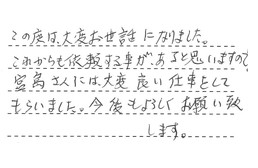 この度は大変お世話になりました。
これからも依頼する事が、あると思いますので
宮島さんには大変良い仕事をして
もらいました。今後もよろしくお願い致
します。